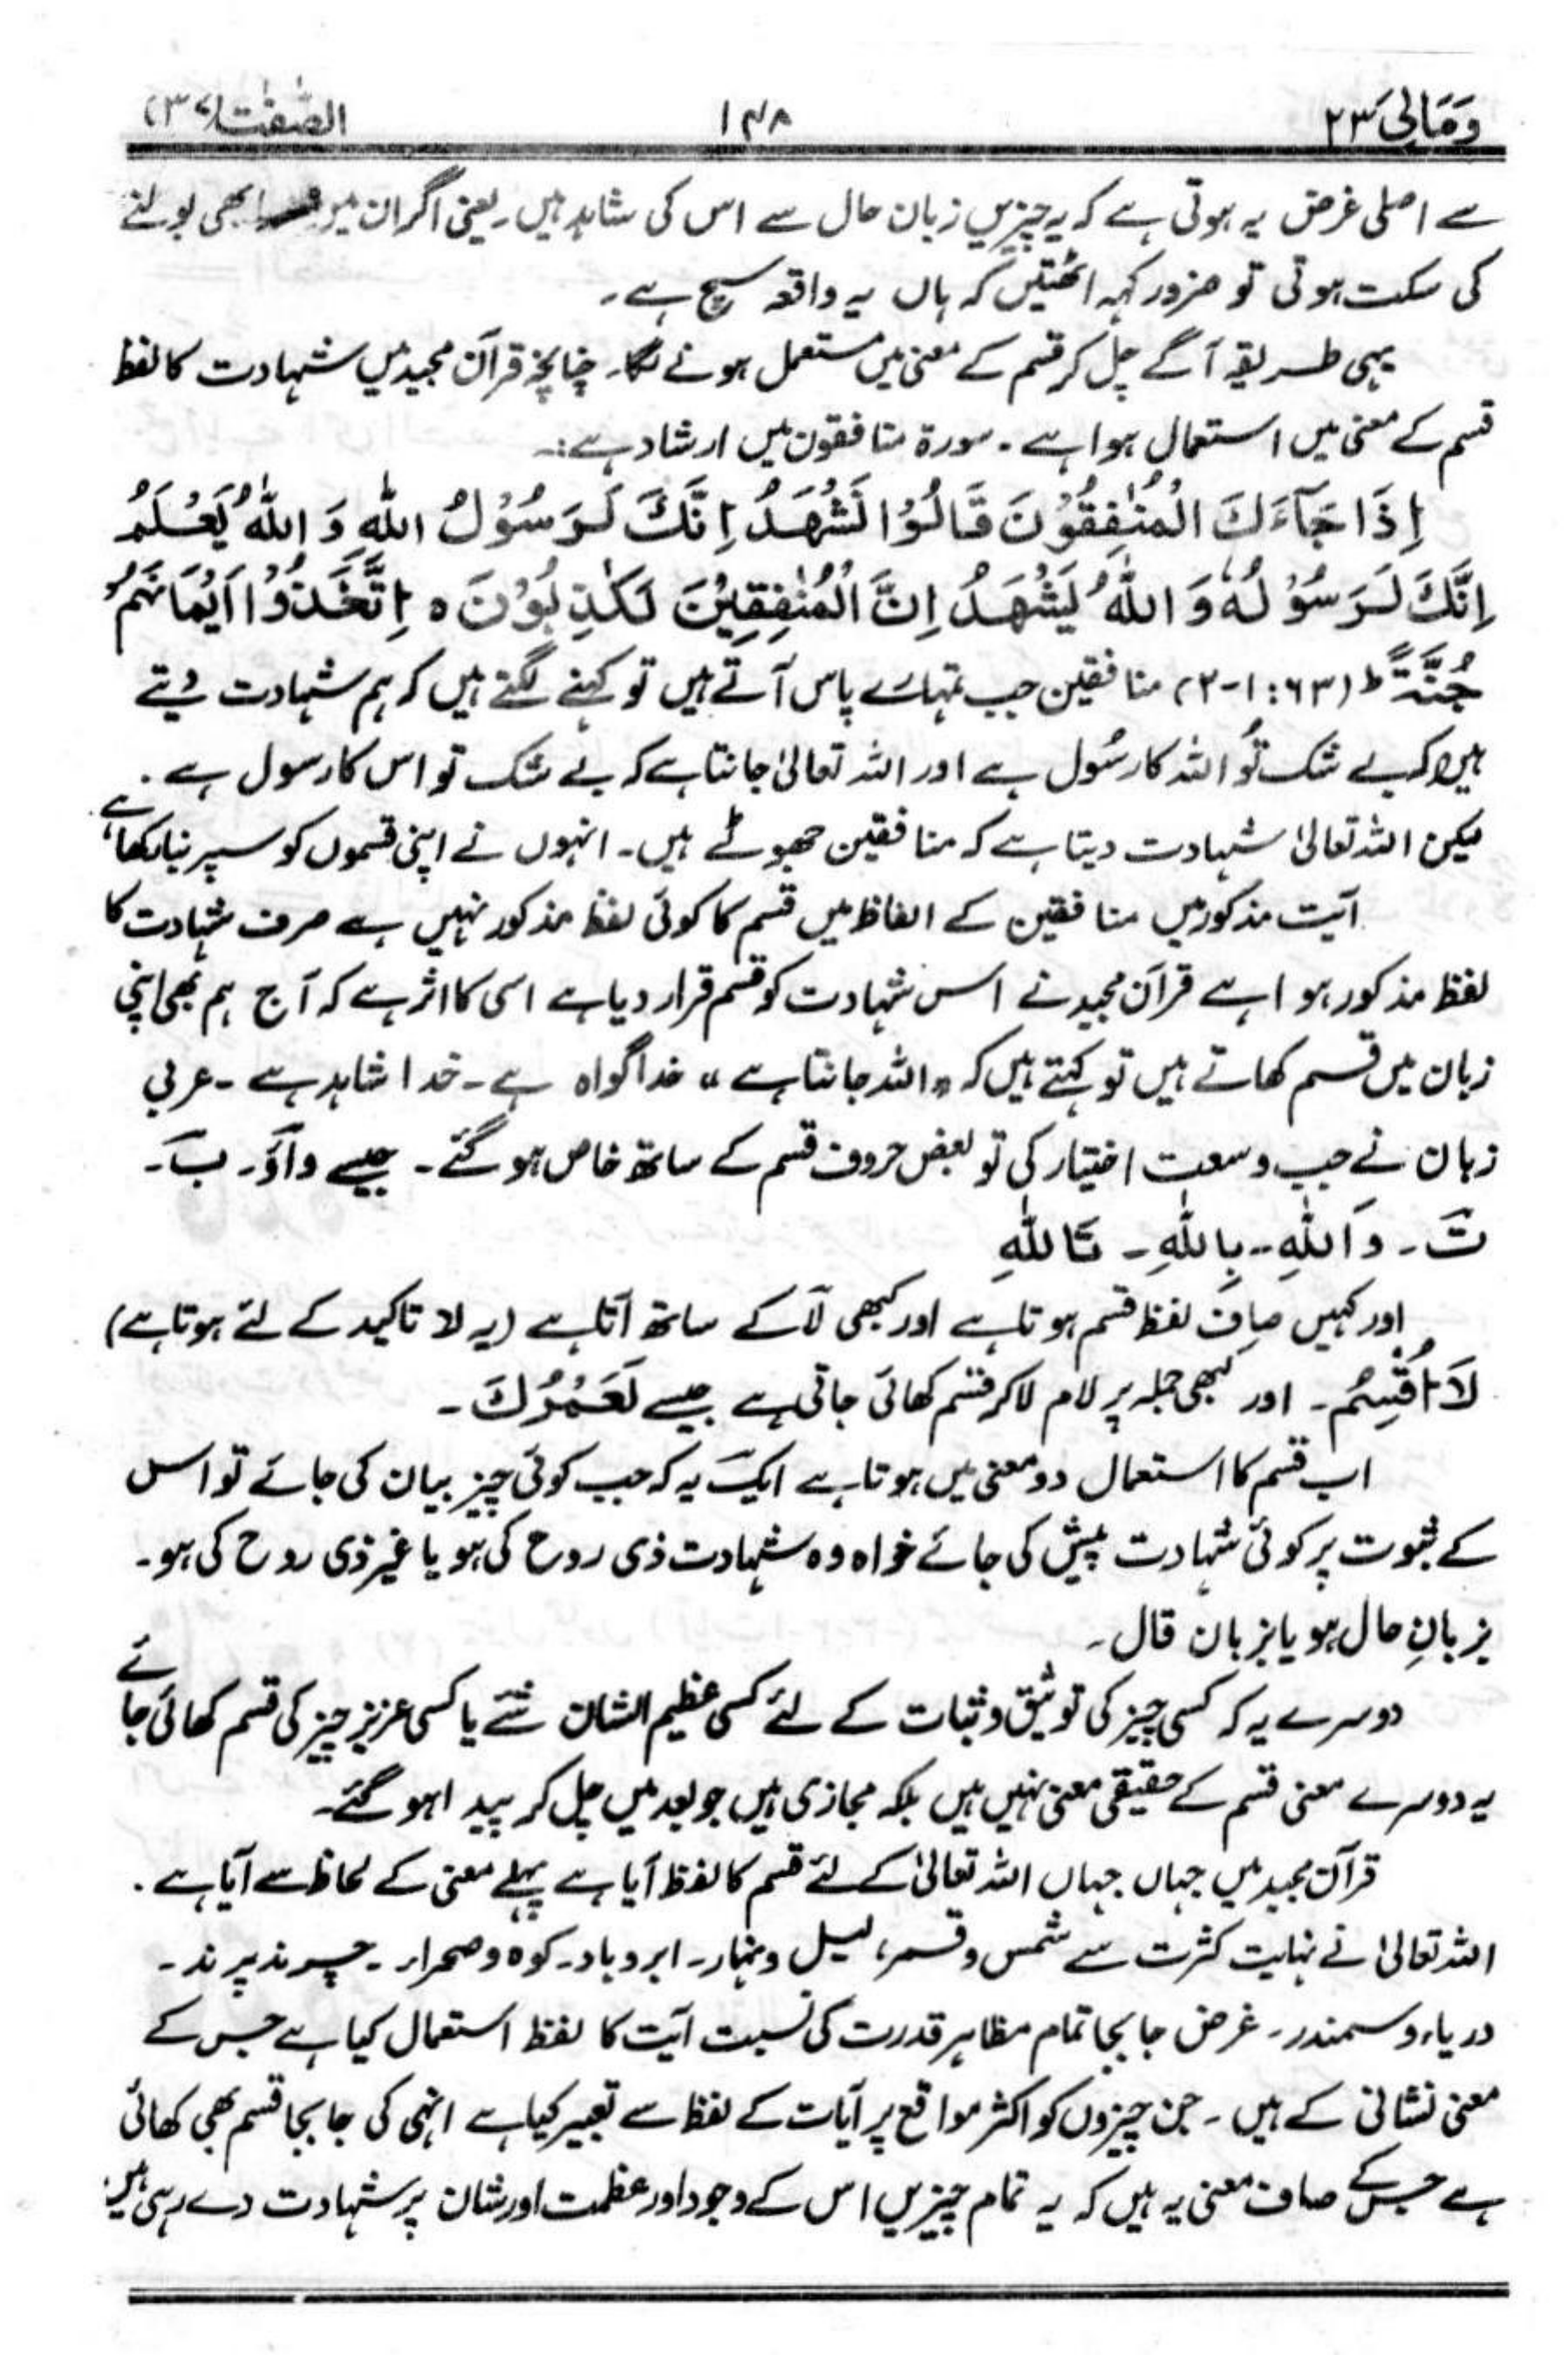 وَمَالِیَ ۲۳ ۱۴۸ الصّٰفّٰت (۳۷)
سے اصلی غرض یہ ہوتی ہے کہ یہ چیزیں زبان حال سے اس کی شاہد ہیں۔ یعنی اگر ان میں بھی بولنے
کی سکت ہوتی تو ضرور کہہ اٹھتیں کہ ہاں یہ واقعہ سچ ہے۔
یہی طریقہ آگے چل کر قسم کے معنی میں مستعمل ہونے لگا۔ چنانچہ قرآن مجید میں شہادت کا لفظ
قسم کے معنی میں استعمال ہوا ہے۔ سورۃ منافقون میں ارشاد ہے:۔
اِذَا جَآءَكَ الْمُنٰفِقُوْنَ قَالُوْا نَشْهَدُ اِنَّكَ لَرَسُوْلُ اللّٰهِ وَ اللّٰهُ يَعْلَمُ
اِنَّكَ لَرَسُوْلُهٗ وَ اللّٰهُ يَشْهَدُ اِنَّ الْمُنٰفِقِيْنَ لَكٰذِبُوْنَ ہ اِتَّخَذُوْا اَيْمَانَهُمْ
جُنَّةً ط (۶۳: ۱-۲) منافقین جب تمہارے پاس آتے ہیں تو کہنے لگتے ہیں کہ ہم شہادت دیتے
ہیں کہ بے شک تُو اللہ کا رسُول ہے اور اللہ تعالیٰ جانتا ہے کہ بے شک تو اس کا رسول ہے۔
لیکن اللہ تعالیٰ شہادت دیتا ہے کہ منافقین جھوٹے ہیں۔ انہوں نے اپنی قسموں کو سپر بنا رکھا ہے
آیت مذکور میں منافقین کے الفاظ میں قسم کا کوئی لفظ مذکور نہیں ہے صرف شہادت کا
لفظ مذکور ہوا ہے قرآن مجید نے اس شہادت کو قسم قرار دیا ہے اسی کا اثر ہے کہ آج ہم بھی اپنی
زبان میں قسم کھاتے ہیں تو کہتے ہیں کہ "اللہ جانتا ہے" خدا گواہ ہے۔ خدا شاہد ہے۔ عربی
زبان نے جب وسعت اختیار کی تو بعض حروف قسم کے ساتھ خاص ہو گئے۔ جیسے واؤ۔ بَ۔
تَ۔ وَاللّٰهِ۔ بِاللّٰهِ۔ تَاللّٰهِ
اور کہیں صاف لفظ قسم ہوتا ہے اور کبھی لَا کے ساتھ آتا ہے (یہ لا تاکید کے لئے ہوتا ہے)
لَا اُقْسِمُ۔ اور کبھی جملہ پر لام لا کر قسم کھائی جاتی ہے جیسے لَعَمْرُكَ۔
اب قسم کا استعمال دو معنی میں ہوتا ہے ایک یہ کہ جب کوئی چیز بیان کی جائے تو اس
کے ثبوت پر کوئی شہادت پیش کی جائے خواہ وہ شہادت ذی روح کی ہو یا غیر ذی روح کی ہو۔
بزبانِ حال ہو یا بزبان قال۔
دوسرے یہ کہ کسی چیز کی توثیق و ثبات کے لئے کسی عظیم الشان شئے یا کسی عزیز چیز کی قسم کھائی جائے
یہ دوسرے معنی قسم کے حقیقی معنی نہیں ہیں بلکہ مجازی ہیں جو بعد میں چل کر پیدا ہو گئے۔
قرآن مجید میں جہاں جہاں اللہ تعالیٰ کے لئے قسم کا لفظ آیا ہے پہلے معنی کے لحاظ سے آیا ہے۔
اللہ تعالیٰ نے نہایت کثرت سے شمس و قمر، لیل و نہار۔ ابر و باد۔ کوہ و صحراء۔ چرند پرند۔
دریاء و سمندر۔ غرض جا بجا تمام مظاہر قدرت کی نسبت آیت کا لفظ استعمال کیا ہے جس کے
معنی نشانی کے ہیں۔ جن چیزوں کو اکثر مواقع پر آیات کے لفظ سے تعبیر کیا ہے انہی کی جا بجا قسم بھی کھائی
ہے جس کے صاف معنی یہ ہیں کہ یہ تمام چیزیں اس کے وجود اور عظمت اور شان پر شہادت دے رہی ہیں